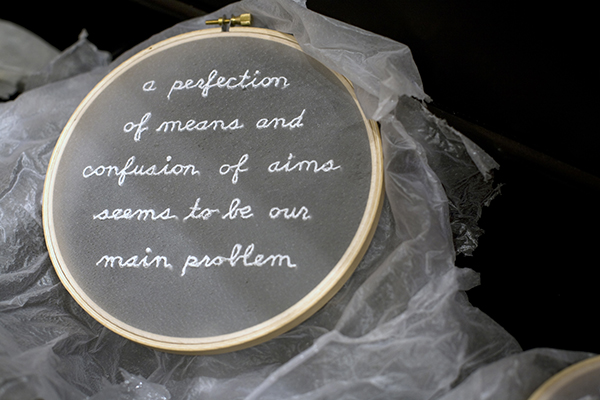 a perfection
of means and
confusion of aims
seems to be our
main problem